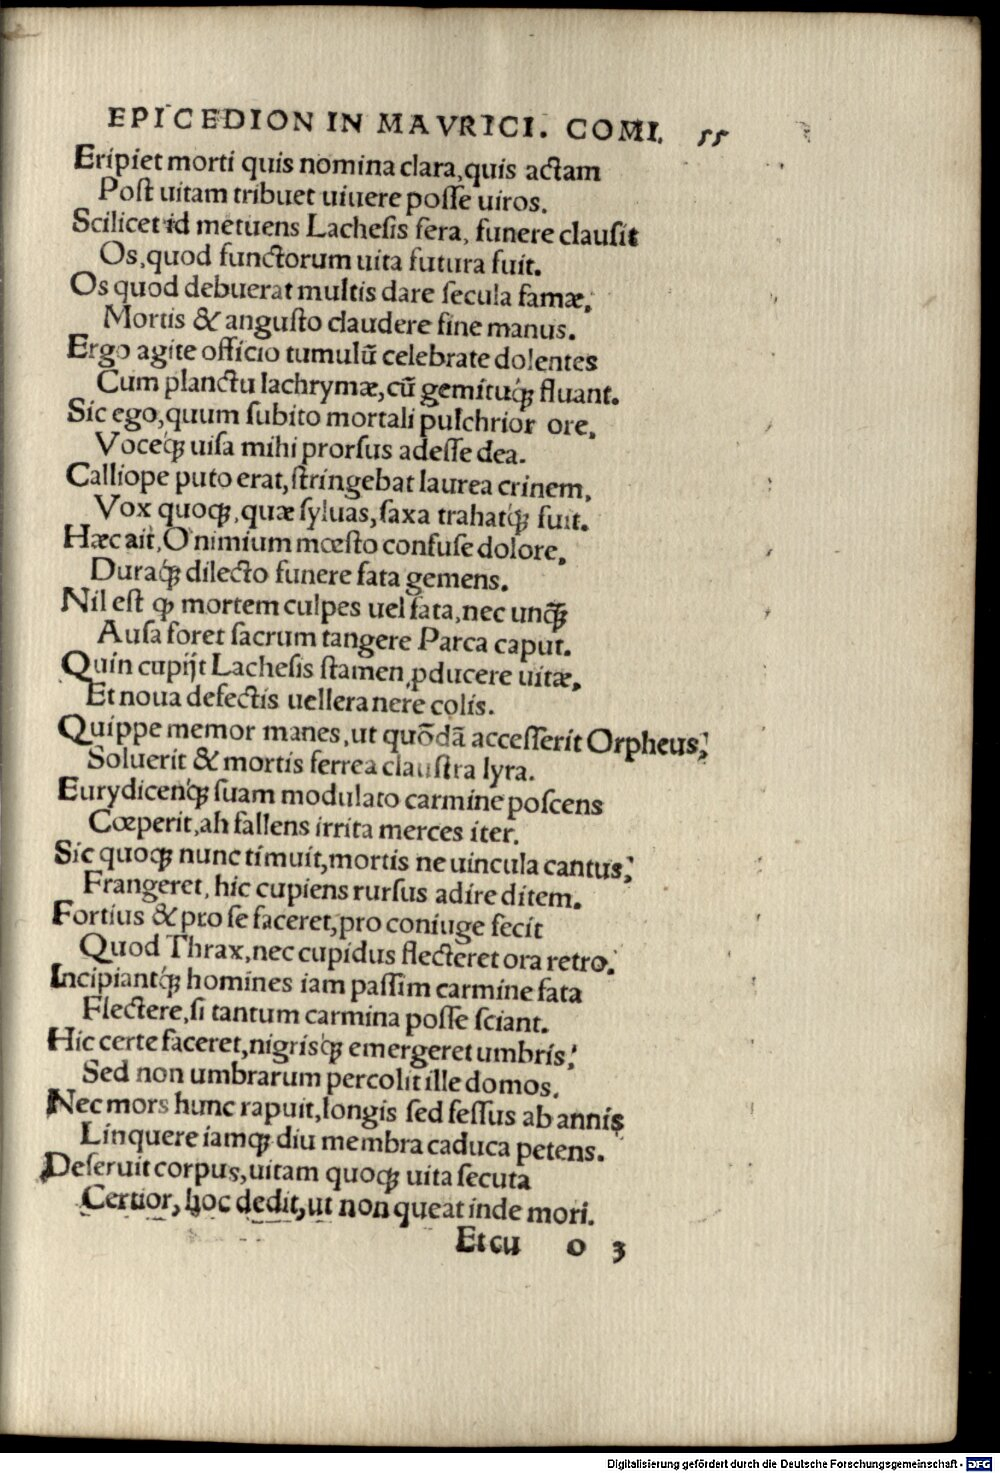 EPICEDION IN MAVRICI. COMI. 55
Eripiet morti quis nomina clara, quis actam
Post uitam tribuet uiuere posse uiros.
Scilicet id metuens Lachesis fera, funere clausit
Os, quod functorum uita futura fuit.
Os quod debuerat multis dare secula famæ,
Mortis & angusto claudere fine manus.
Ergo agite officio tumulũ celebrate dolentes
Cum planctu lachrymæ, cũ gemituq́ꝫ fluant.
Sic ego, quum subito mortali pulchrior ore,
Voceq́ꝫ uisa mihi prorsus adesse dea.
Calliope puto erat, stringebat laurea crinem,
Vox quoqꝫ, quæ syluas, saxa trahatq́ꝫ fuit.
Hæc ait, O nimium mœsto confuse dolore,
Duraq́ꝫ dilecto funere fata gemens.
Nil est ꝙ mortem culpes uel fata, nec unq̃ꝫ
Ausa foret sacrum tangere Parca caput.
Quin cupijt Lachesis stamen ꝓducere uitæ,
Et noua defectis uellera nere colis.
Quippe memor manes, ut quōdã accesserit Orpheus,
Soluerit & mortis ferrea claustra lyra.
Eurydicenq́ꝫ suam modulato carmine poscens
Cœperit, ah fallens irrita merces iter.
Sic quoqꝫ nunc timuit, mortis ne uincula cantus,
Frangeret, hic cupiens rursus adire ditem.
Fortius & pro se faceret, pro coniuge fecit
Quod Thrax, nec cupidus flecteret ora retro.
Incipiantq́ꝫ homines iam passim carmine fata
Flectere, si tantum carmina posse sciant.
Hic certe faceret, nigrisq́ꝫ emergeret umbris,
Sed non umbrarum percolit ille domos.
Nec mors hunc rapuit, longis sed fessus ab annis
Linquere iamqꝫ diu membra caduca petens.
Deseruit corpus, uitam quoqꝫ uita secuta
Certior, hoc dedit, ut non queat inde mori.
Et cu o 3
Digitalisierung gefördert durch die Deutsche Forschungsgemeinschaft - DFG